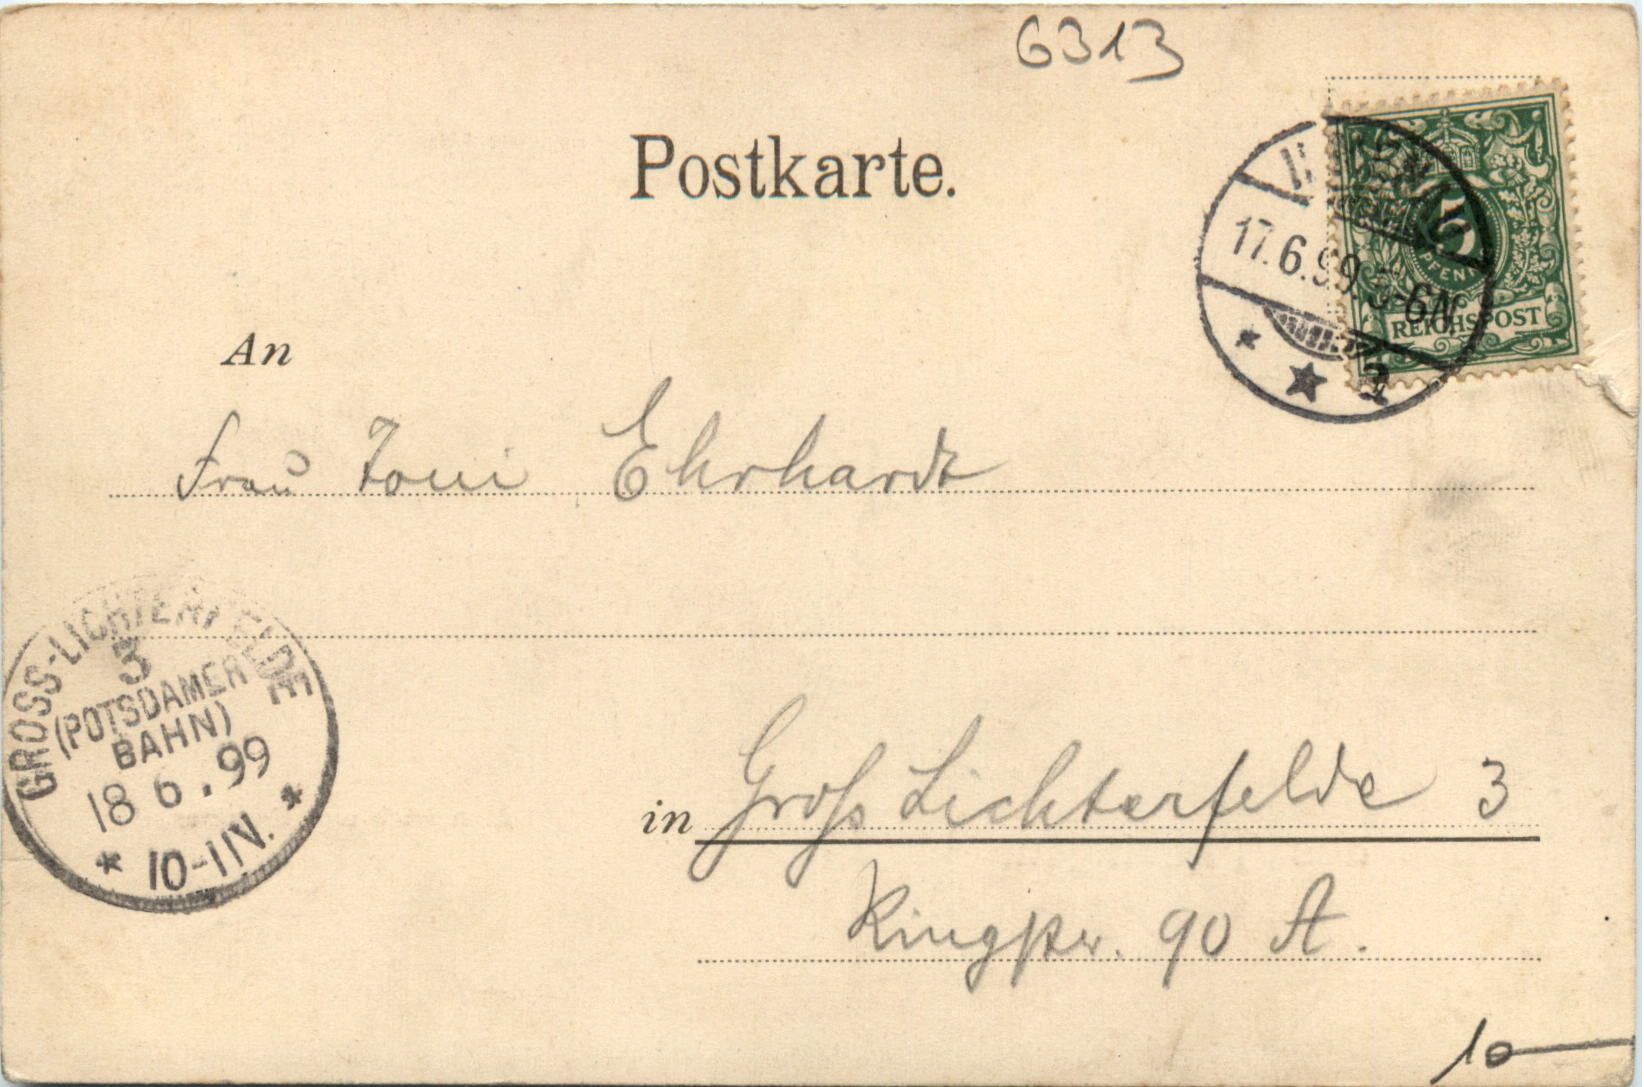 6313
Postkarte.
17.6.99. 5-6N.
5
PFENNIG
REICHSPOST
An
Frau Toni Ehrhardt
GROSS-LICHTERFELDE
3
(POTSDAMER
BAHN)
18 6.99
10-11N.
in Groß Lichterfelde 3
Ringstr. 90 A.
10